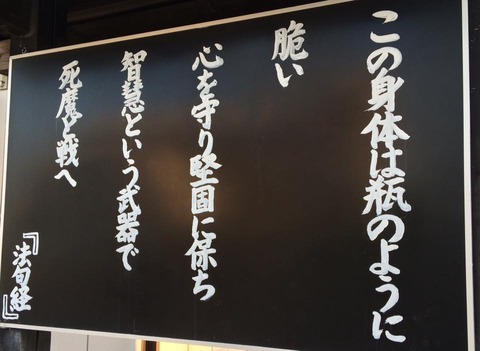 この身体は瓶のように
脆い
心を守り堅固に保ち
智慧という武器で
死魔と戦へ
『法句経』